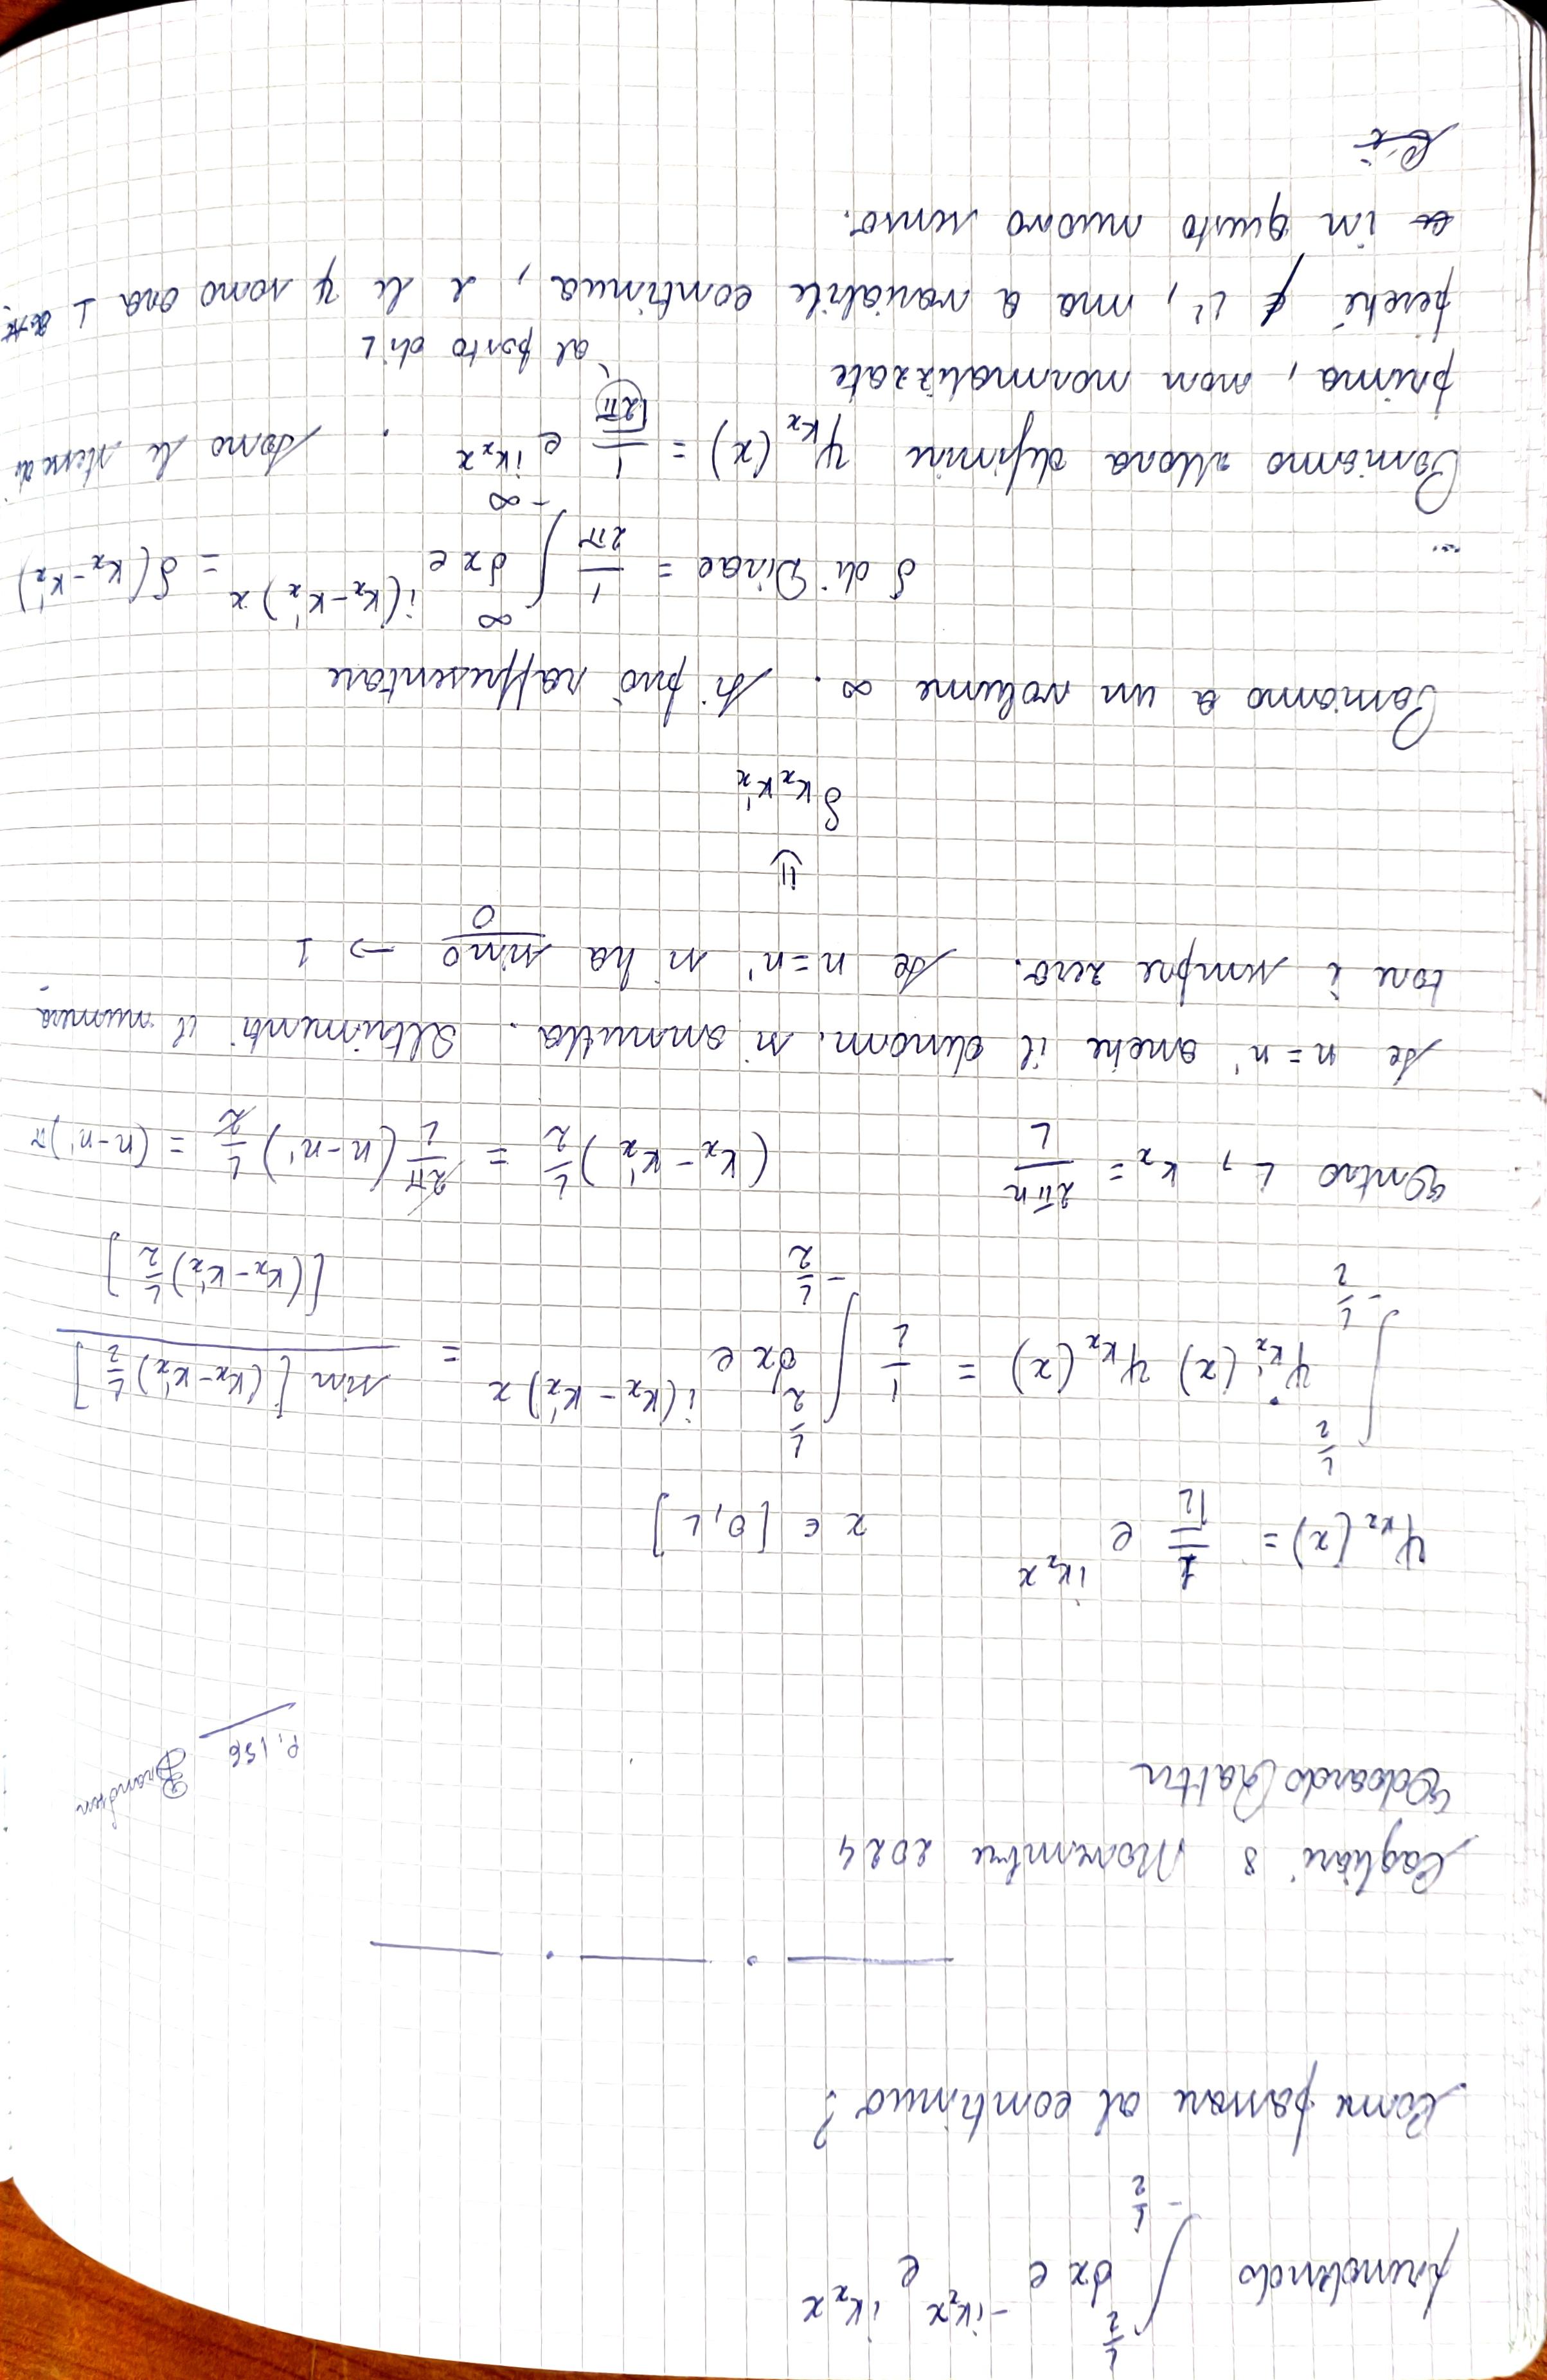 prendendo ∫_{-L/2}^{L/2} dx e^{-ik_x x} e^{ik_x x}
Come passare al continuo?
Cagliari 8 Novembre 2024
Edoardo Rattu
P. 156 Brandsen
ψ_{k_x}(x) = 1/√L e^{ik_x x} x ∈ [0, L]
∫_{-L/2}^{L/2} ψ*_{k'_x}(x) ψ_{k_x}(x) = 1/L ∫_{-L/2}^{L/2} dx e^{i(k_x - k'_x)x} = sin[(k_x - k'_x) L/2] / [(k_x - k'_x) L/2]
Entro L, k_x = 2πn/L (k_x - k'_x) L/2 = 2π/L (n - n') L/2 = (n - n')π
Se n = n' anche il denom. si annulla. Altrimenti il numera
tore è sempre zero. Se n = n' si ha sin0/0 → 1
⇓
δ_{k_x k'_x}
Passiamo a un volume ∞. Si può rappresentare
δ di Dirac = 1/2π ∫_{-∞}^{∞} dx e^{i(k_x - k'_x)x} = δ(k_x - k'_x)
Possiamo allora definire ψ_{k_x}(x) = 1/√2π e^{ik_x x} . Sono le stesse di
prima, non normalizzate
al posto di L
perché ∉ L², ma a variabile continua, e le ψ sono ora ⊥
in questo nuovo senso.